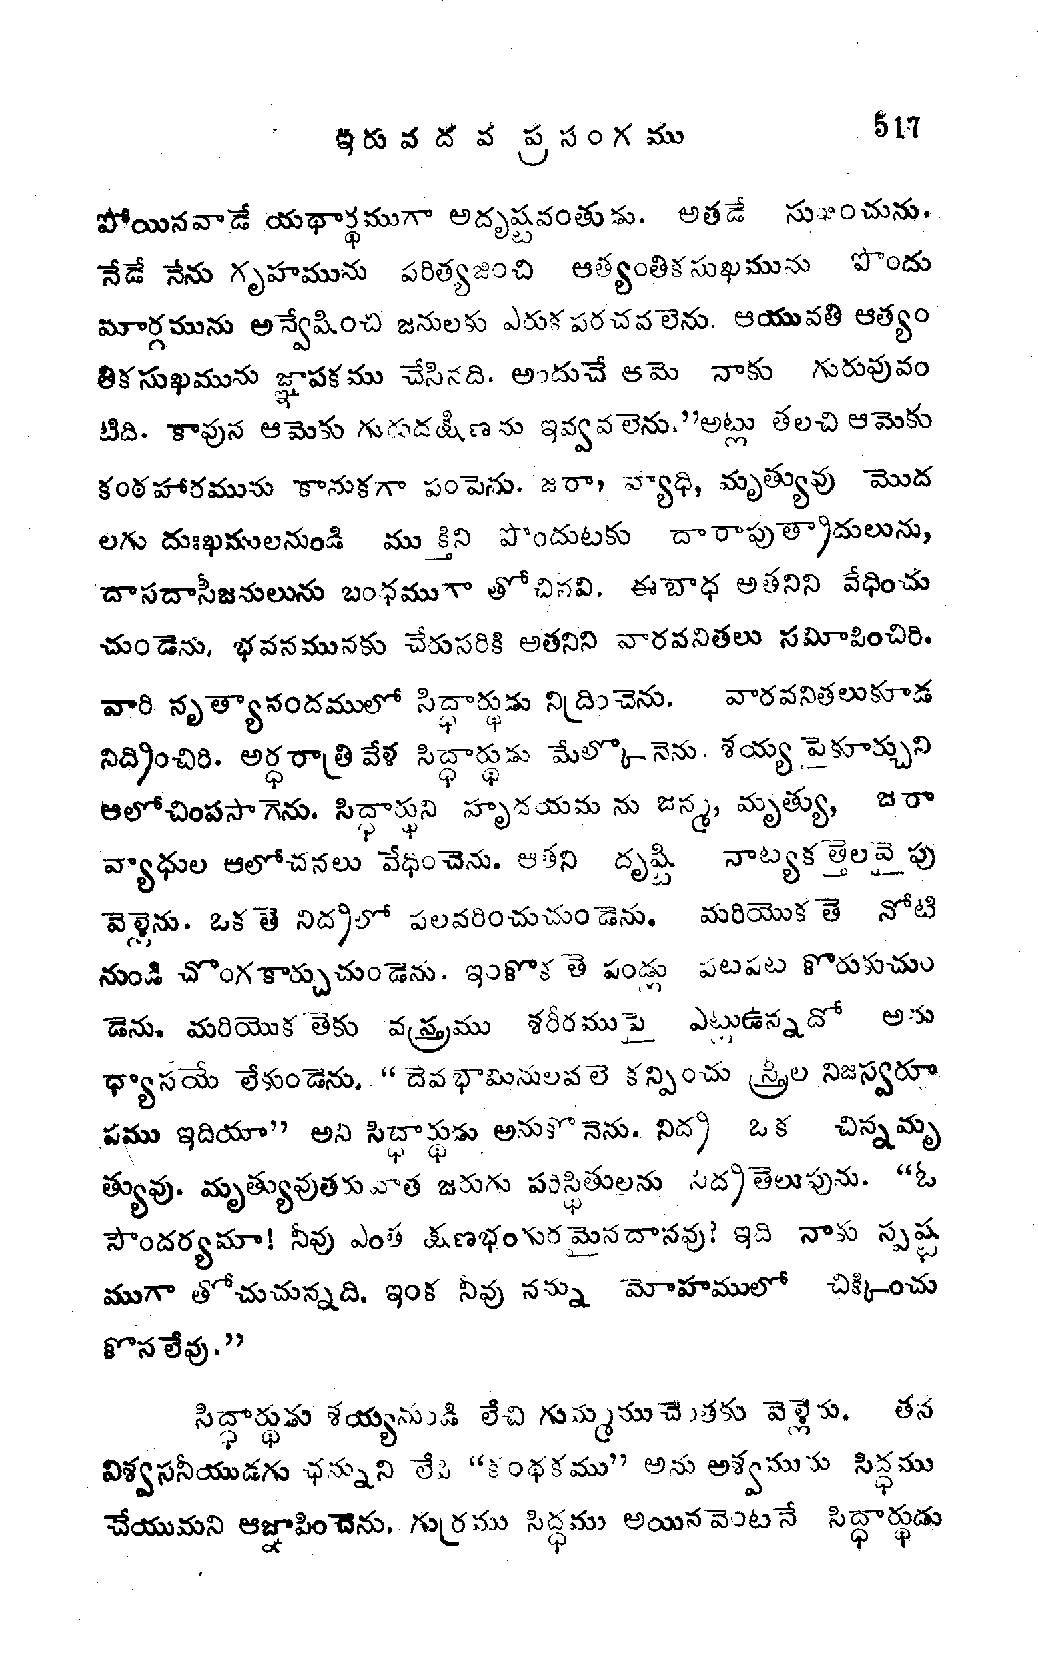 ఇరువదవ ప్రసంగము 517
పోయినవాడే యథార్థముగా అదృష్టవంతుడు. అతడే సుఖించును.
నేడే నేను గృహమును పరిత్యజించి ఆత్యంతికసుఖమును పొందు
మార్గమును అన్వేషించి జనులకు ఎరుకపరచవలెను. ఆయువతి ఆత్యం
తికసుఖమును జ్ఞాపకము చేసినది. అందుచే ఆమె నాకు గురువువం
టిది. కావున ఆమెకు గురుదక్షిణను ఇవ్వవలెను."అట్లు తలచి ఆమెకు
కంఠహారమును కానుకగా పంపెను. జరా, వ్యాధి, మృత్యువు మొద
లగు దుఃఖములనుండి ముక్తిని పొందుటకు దారాపుత్రాదులును,
దాసదాసీజనులును బంధముగా తోచినవి. ఈబాధ అతనిని వేధించు
చుండెను. భవనమునకు చేరుసరికి అతనిని వారవనితలు సమీపించిరి.
వారి నృత్యానందములో సిద్ధార్థుడు నిద్రించెను. వారవనితలుకూడ
నిద్రించిరి. అర్ధరాత్రి వేళ సిద్ధార్థుడు మేల్కొనెను. శయ్యపైకూర్చుని
ఆలోచింపసాగెను. సిద్ధార్థుని హృదయమును జన్మ, మృత్యు, జరా
వ్యాధుల ఆలోచనలు వేధించెను. ఆతని దృష్టి నాట్యకత్తెలవైపు
వెళ్లెను. ఒకతె నిద్రలో పలవరించుచుండెను. మరియొకతె నోటి
నుండి చొంగకార్చుచుండెను. ఇంకొకతె పండ్లు పటపట కొరుకుచుం
డెను. మరియొకతెకు వస్త్రము శరీరముపై ఎట్లుఉన్నదో అను
ధ్యాసయే లేకుండెను. "దేవభామినులవలె కన్పించు స్త్రీల నిజస్వరూ
పము ఇదియా" అని సిద్ధార్థుడు అనుకొనెను. నిద్ర ఒక చిన్నమృ
త్యువు. మృత్యువుతరువాత జరుగు పరిస్థితులను నిద్రతెలుపును. "ఓ
సౌందర్యమా! నీవు ఎంత క్షణభంగురమైనదానవు! ఇది నాకు స్పష్ట
ముగా తోచుచున్నది. ఇంక నీవు నన్ను మోహములో చిక్కించు
కొనలేవు."
సిద్ధార్థుడు శయ్యనుండి లేచి గుమ్మముచెంతకు వెళ్లెను. తన
విశ్వసనీయుడగు ఛన్నుని లేపి "కంథకము" అను అశ్వమును సిద్ధము
చేయుమని ఆజ్ఞాపించెను. గుర్రము సిద్ధము అయినవెంటనే సిద్ధార్థుడు